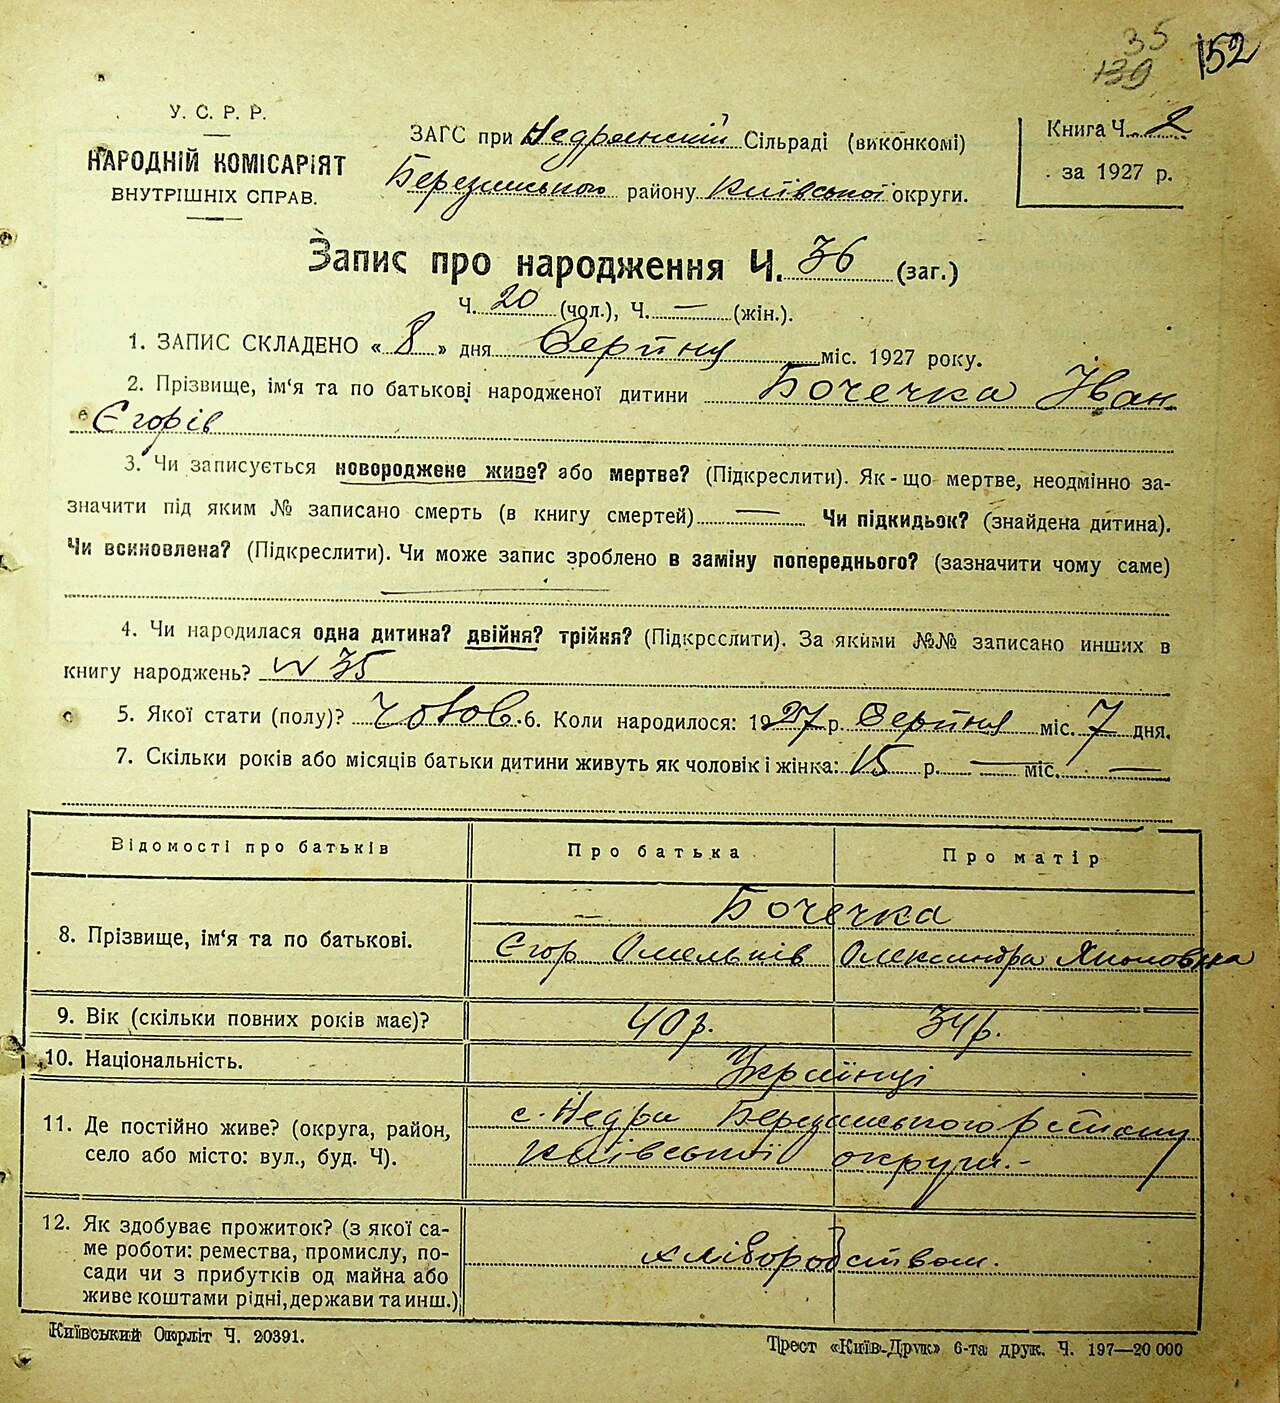 35
139 152
У. С. Р. Р.
НАРОДНІЙ КОМІСАРІЯТ
ВНУТРІШНІХ СПРАВ.
ЗАГС при Недрянській Сільраді (виконкомі)
Березанського району Київської округи.
Книга Ч. 2
за 1927 р.
Запис про народження Ч. 36 (заг.)
Ч. 20 (чол.), Ч. — (жін.).
1. ЗАПИС СКЛАДЕНО « 8 » дня Серпня міс. 1927 року.
2. Прізвище, ім‘я та по батькові народженої дитини Бочечка Іван
Єгорів
3. Чи записується новороджене живе? або мертве? (Підкреслити). Як-що мертве, неодмінно за-
значити під яким № записано смерть (в книгу смертей) — Чи підкидьок? (знайдена дитина).
Чи всиновлена? (Підкреслити). Чи може запис зроблено в заміну попереднього? (зазначити чому саме)
4. Чи народилася одна дитина? двійня? трійня? (Підкреслити). За якими №№ записано инших в
книгу народжень? № 35
5. Якої стати (полу)? чолов. 6. Коли народилося: 1927 р. Серпня міс. 7 дня.
7. Скільки років або місяців батьки дитини живуть як чоловік і жінка: 15 р. — міс. —
Відомості про батьків Про батька Про матір
8. Прізвище, ім'я та по батькові. Бочечка
Єгор Омельків Олександра
9. Вік (скільки повних років має)? 40 р. 34 р.
10. Національність. Українці
11. Де постійно живе? (округа, район,
село або місто: вул., буд. Ч).
с. Недри Березанського району
Київської округи.-
12. Як здобуває прожиток? (з якої са-
ме роботи: ремества, промислу, по-
сади чи з прибутків од майна або
живе коштами рідні, держави та инш.)
хліборобством.
Київський Окрліт Ч. 20391.
Трест «Київ-Друк» 6-та друк. Ч. 197—20 000